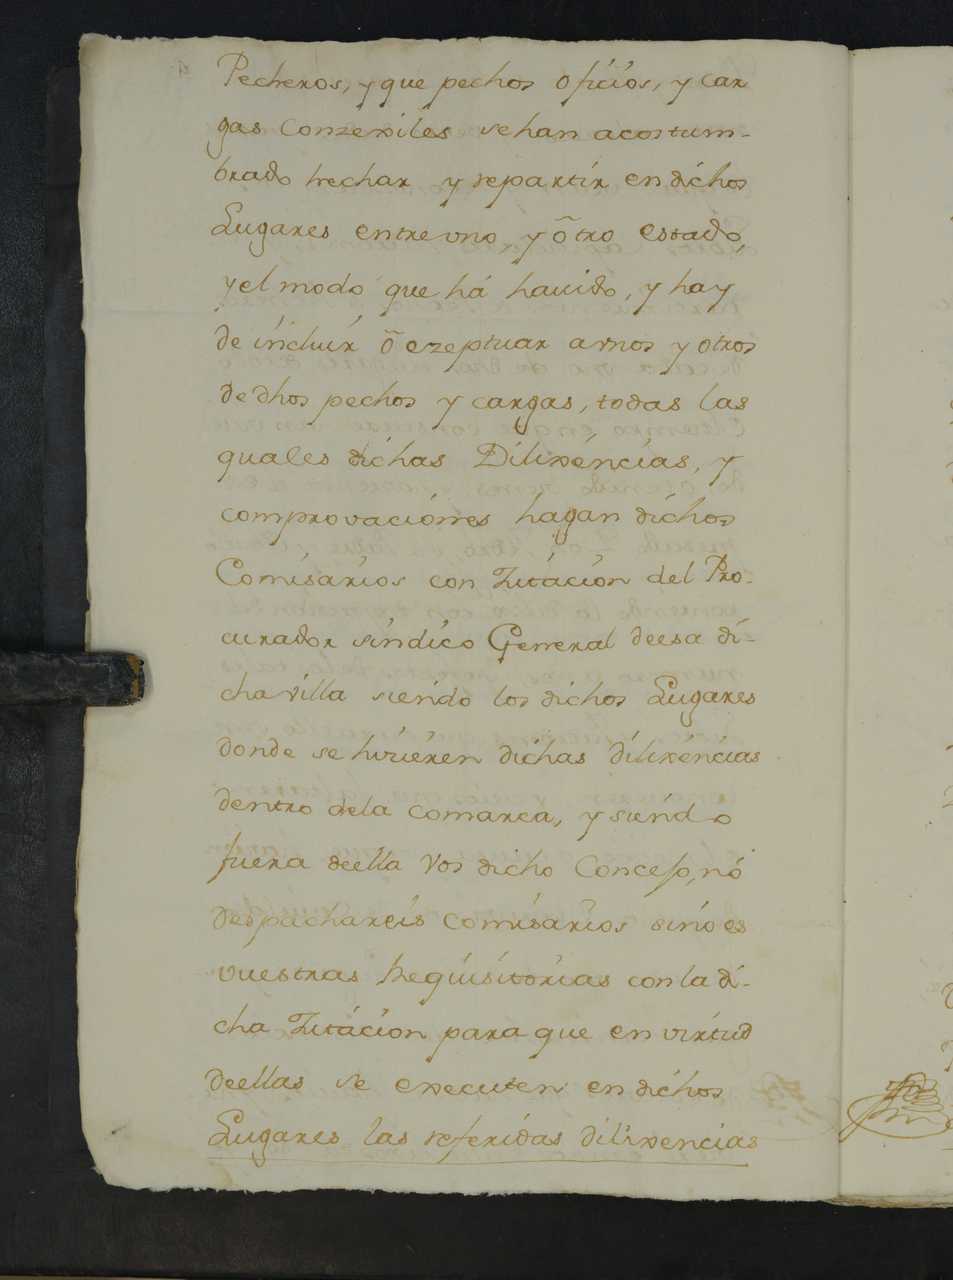 Pecheros, y que pechos oficios, y car
gas Conzexiles se han acostum-
brado hechar y repartir en dichos
Lugares entre uno, y õtro estado,
y el modo que há havido, y hay
de incluir õ ezeptuar a unos y otros
de dhos pechos y cargas, todas las
quales dichas Dilixencias, y
comprovaciónes hagan dichos
Comisarios con Zitacion del Pro-
curador sindico General de esa di-
cha villa siendo los dichos Lugares
donde se hizieren dichas dilixéncias
dentro de la comarca, y siéndo
fuera de ella Vos dicho Concejo, nó
despachareis Comisarios sino es
vuestras Requisitórias con la di-
cha Zitácion para que en virtud
de ellas se executen en dichos
Lugares las referidas dilixencias